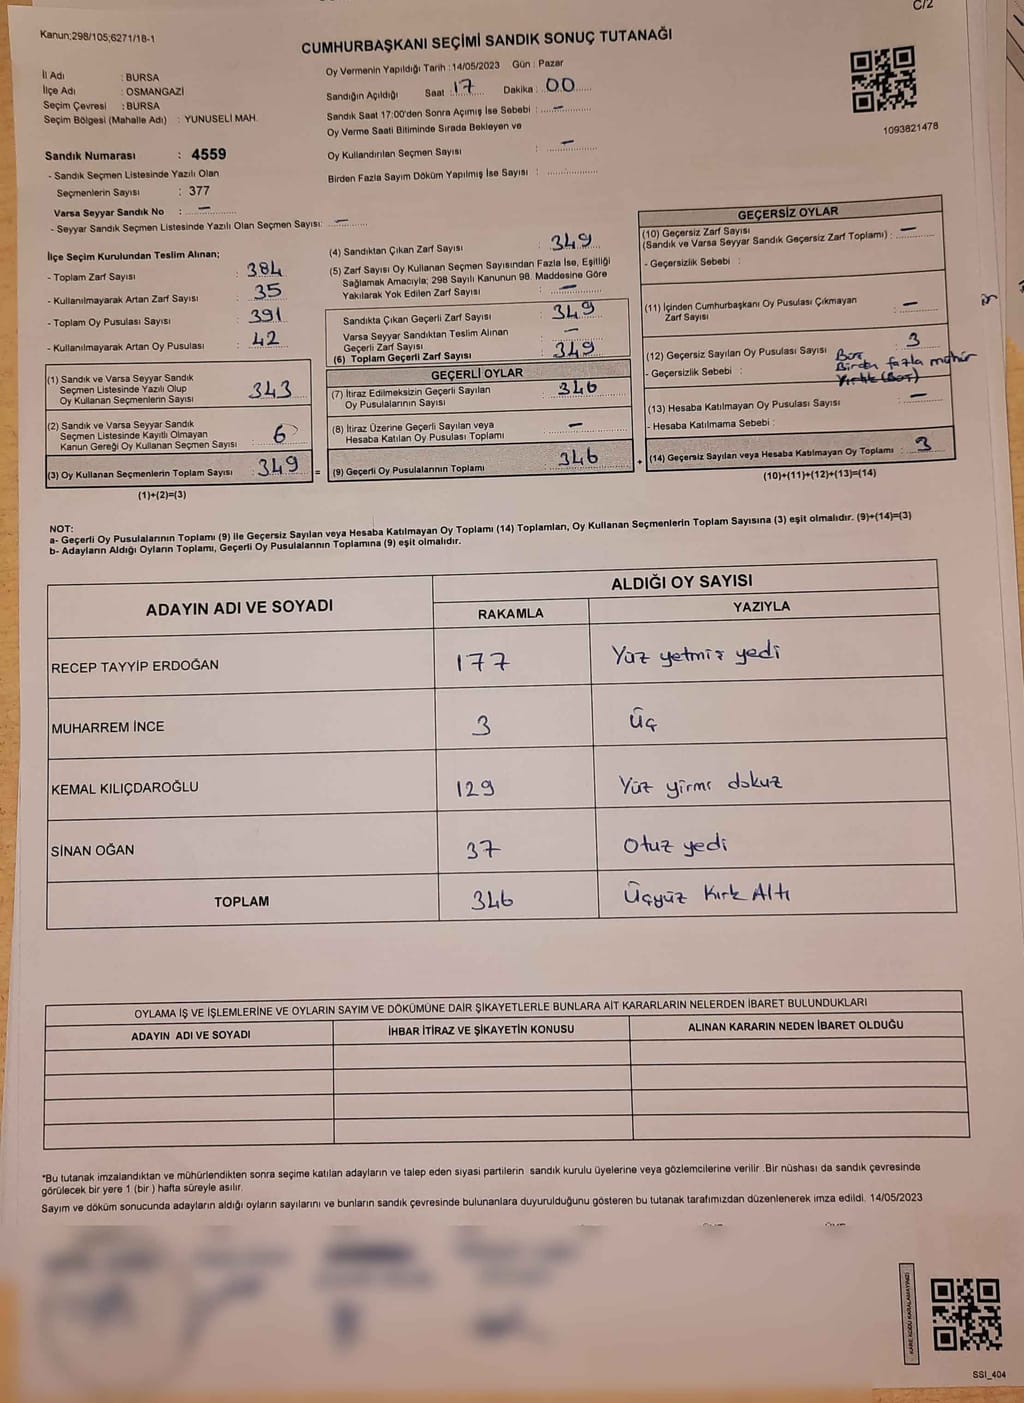 C/2
Kanun;298/105;6271/18-1
CUMHURBAŞKANI SEÇİMİ SANDIK SONUÇ TUTANAĞI
İl Adı : BURSA
İlçe Adı : OSMANGAZİ
Seçim Çevresi : BURSA
Seçim Bölgesi (Mahalle Adı) : YUNUSELİ MAH.
Sandık Numarası : 4559
- Sandık Seçmen Listesinde Yazılı Olan
Seçmenlerin Sayısı : 377
Varsa Seyyar Sandık No : —
- Seyyar Sandık Seçmen Listesinde Yazılı Olan Seçmen Sayısı: —
Oy Vermenin Yapıldığı Tarih : 14/05/2023 Gün : Pazar
Sandığın Açıldığı Saat : 17 Dakika : 00
Sandık Saat 17:00'den Sonra Açımış İse Sebebi : —
Oy Verme Saati Bitiminde Sırada Bekleyen ve
Oy Kullandırılan Seçmen Sayısı : —
Birden Fazla Sayım Döküm Yapılmış İse Sayısı :
1093821478
İlçe Seçim Kurulundan Teslim Alınan;
- Toplam Zarf Sayısı : 384
- Kullanılmayarak Artan Zarf Sayısı : 35
- Toplam Oy Pusulası Sayısı : 391
- Kullanılmayarak Artan Oy Pusulası : 42
(1) Sandık ve Varsa Seyyar Sandık
Seçmen Listesinde Yazılı Olup
Oy Kullanan Seçmenlerin Sayısı 343
(2) Sandık ve Varsa Seyyar Sandık
Seçmen Listesinde Kayıtlı Olmayan
Kanun Gereği Oy Kullanan Seçmen Sayısı 6
(3) Oy Kullanan Seçmenlerin Toplam Sayısı : 349 =
(1)+(2)=(3)
(4) Sandıktan Çıkan Zarf Sayısı : 349
(5) Zarf Sayısı Oy Kullanan Seçmen Sayısından Fazla İse, Eşitliği
Sağlamak Amacıyla; 298 Sayılı Kanunun 98. Maddesine Göre
Yakılarak Yok Edilen Zarf Sayısı : —
Sandıkta Çıkan Geçerli Zarf Sayısı : 349
Varsa Seyyar Sandıktan Teslim Alınan
Geçerli Zarf Sayısı —
(6) Toplam Geçerli Zarf Sayısı : 349
GEÇERLİ OYLAR
(7) İtiraz Edilmeksizin Geçerli Sayılan
Oy Pusulalarının Sayısı : 346
(8) İtiraz Üzerine Geçerli Sayılan veya
Hesaba Katılan Oy Pusulası Toplamı : —
(9) Geçerli Oy Pusulalarının Toplamı : 346 +
GEÇERSİZ OYLAR
(10) Geçersiz Zarf Sayısı
(Sandık ve Varsa Seyyar Sandık Geçersiz Zarf Toplamı) : —
- Geçersizlik Sebebi :
(11) İçinden Cumhurbaşkanı Oy Pusulası Çıkmayan
Zarf Sayısı : —
(12) Geçersiz Sayılan Oy Pusulası Sayısı : 3
- Geçersizlik Sebebi : Boş
Birden fazla mühür
Yırtık (Boş)
(13) Hesaba Katılmayan Oy Pusulası Sayısı : —
- Hesaba Katılmama Sebebi :
(14) Geçersiz Sayılan veya Hesaba Katılmayan Oy Toplamı : 3
(10)+(11)+(12)+(13)=(14)
NOT:
a- Geçerli Oy Pusulalarının Toplamı (9) ile Geçersiz Sayılan veya Hesaba Katılmayan Oy Toplamı (14) Toplamları, Oy Kullanan Seçmenlerin Toplam Sayısına (3) eşit olmalıdır. (9)+(14)=(3)
b- Adayların Aldığı Oyların Toplamı, Geçerli Oy Pusulalarının Toplamına (9) eşit olmalıdır.
ADAYIN ADI VE SOYADI ALDIĞI OY SAYISI
RAKAMLA YAZIYLA
RECEP TAYYİP ERDOĞAN 177 Yüz yetmiş yedi
MUHARREM İNCE 3 Üç
KEMAL KILIÇDAROĞLU 129 Yüz yirmi dokuz
SİNAN OĞAN 37 Otuz yedi
TOPLAM 346 Üçyüz Kırk Altı
OYLAMA İŞ VE İŞLEMLERİNE VE OYLARIN SAYIM VE DÖKÜMÜNE DAİR ŞİKAYETLERLE BUNLARA AİT KARARLARIN NELERDEN İBARET BULUNDUKLARI
ADAYIN ADI VE SOYADI İHBAR İTİRAZ VE ŞİKAYETİN KONUSU ALINAN KARARIN NEDEN İBARET OLDUĞU
*Bu tutanak imzalandıktan ve mühürlendikten sonra seçime katılan adayların ve talep eden siyasi partilerin sandık kurulu üyelerine veya gözlemcilerine verilir .Bir nüshası da sandık çevresinde
görülecek bir yere 1 (bir ) hafta süreyle asılır.
Sayım ve döküm sonucunda adayların aldığı oyların sayılarını ve bunların sandık çevresinde bulunanlara duyurulduğunu gösteren bu tutanak tarafımızdan düzenlenerek imza edildi. 14/05/2023
KARE KODU KARALAMAYINIZ!
SSI_404